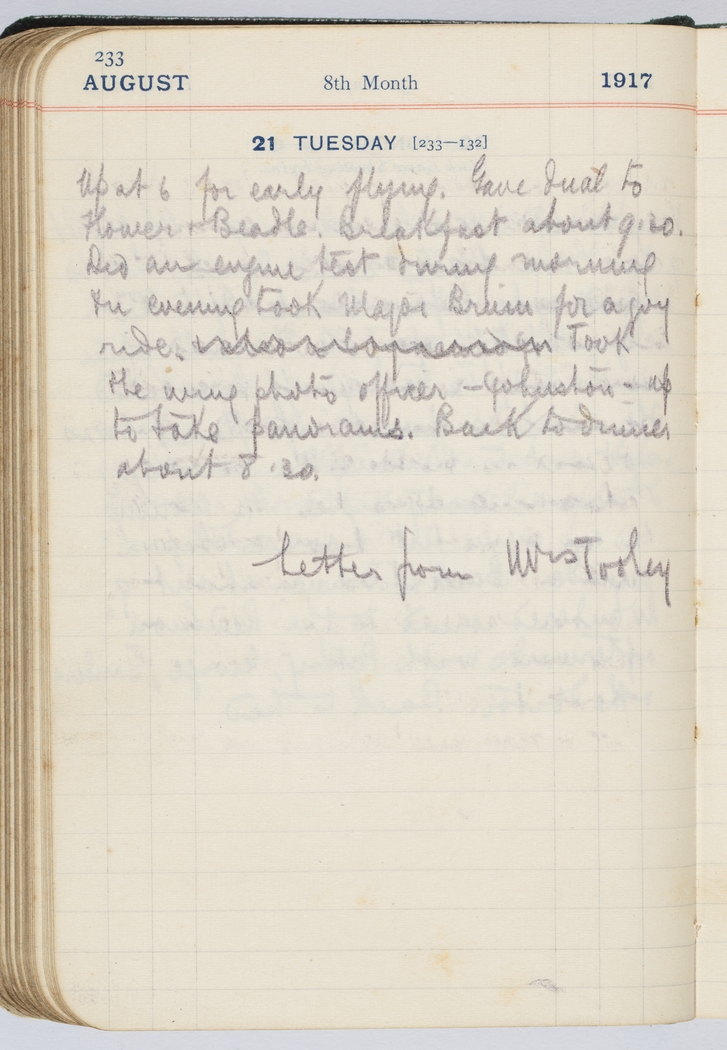 233
AUGUST 8th Month 1917
21 TUESDAY [233—132]
Up at 6 for early flying. Gave dual to
+ Beadle. Breakfast about 9.20.
Did an engine test during morning
In evening took Major Bruin for a joy
ride. Took
the wing photo officer - Johnston - up
to take panorams. Back to dinner
about 8.30.
Letter from Mrs Tooley